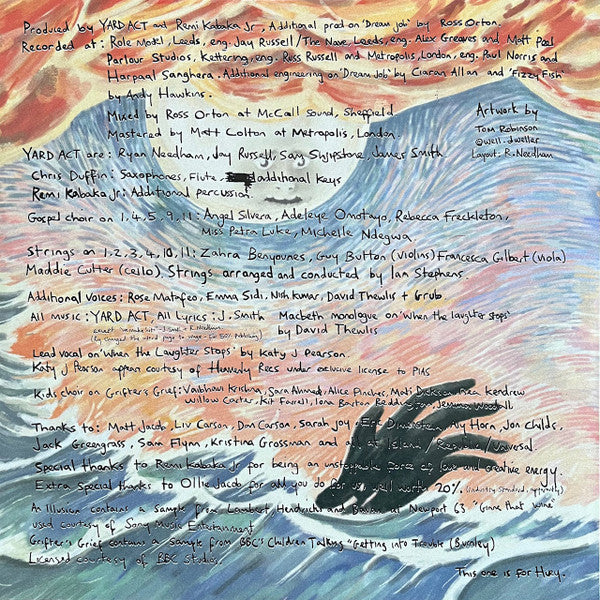 Produced by YARD ACT and Remi Kabaka Jr, Additional prod on 'Dream job' by Ross Orton.
Recorded at: Role Model, Leeds, eng. Jay Russell / The Nave, Leeds, eng. Alex Greaves and Matt Peel
Parlour Studios, Kettering, eng. Russ Russell and Metropolis, London, eng. Paul Norris and
Harpaal Sanghera. Additional engineering on 'Dream Job' by Ciaran Allan and 'Fizzy Fish'
by Andy Hawkins.
Mixed by Ross Orton at McCall Sound, Sheffield
Mastered by Matt Colton at Metropolis, London.
Artwork by
Tom Robinson
@well.dweller
Layout: R. Needham
YARD ACT are: Ryan Needham, Jay Russell, Sam Shjipstone, James Smith
Chris Duffin: Saxophones, Flute, additional keys
Remi Kabaka Jr: Additional percussion.
Gospel choir on 1, 4, 5, 9, 11: Angel Silvera, Adeleye Omotayo, Rebecca Freckleton,
Miss Petra Luke, Michelle Ndegwa.
Strings on 1, 2, 3, 4, 10, 11: Zahra Benyounes, Guy Button (violins) Francesca Gilbert (viola)
Maddie Cutter (cello). Strings arranged and conducted by Ian Stephens.
Additional Voices: Rose Matafeo, Emma Sidi, Nish Kumar, David Thewlis + Grub.
All music: YARD ACT, All Lyrics: J. Smith
except 'we make hits' - J. Smith + R. Needham
Macbeth monologue on 'When the laughter stops'
by David Thewlis
Lead vocal on 'When the Laughter Stops' by Katy J Pearson.
Katy J Pearson appears courtesy of Heavenly Recs under exclusive license to PIAS
Kids choir on Grifter's Grief: Vaibhavi Krishna, Sara Ahmed, Alice Pinches, Kendrew
Willow Carter, Kit Farrell, Iona Barton Reddy
Thanks to: Matt Jacob, Liv Carson, Dan Carson, Sarah Joy, Eric Dimenstein, Ny Horn, Jon Childs,
Jack Greengrass, Sam Flynn, Kristina Grossman and all at Island / Republic / Universal
Special thanks to Remi Kabaka Jr for being an unstoppable force of love and creative energy.
Extra Special thanks to Ollie Jacob for all you do for us, well worth 20%. (industry standard, apparently)
An Illusion contains a sample from Lambert Hendricks and Bavan at Newport 63 "Gimme that wine"
used courtesy of Sony Music Entertainment
Grifter's Grief contains a sample from BBC's Children Talking "Getting into Trouble (Burnley)
Licensed courtesy of BBC Studios.
This one is for Huey.